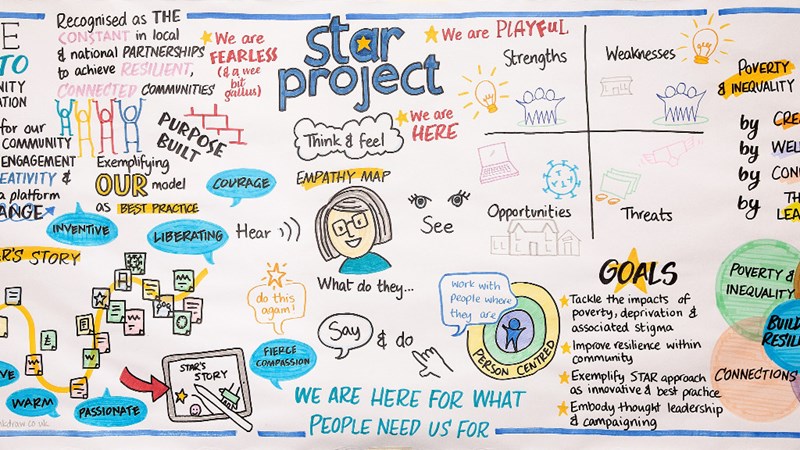 TO
Recognised as THE
CONSTANT in local
& national PARTNERSHIPS
to achieve RESILIENT,
CONNECTED COMMUNITIES
for our
COMMUNITY
ENGAGEMENT
&
a platform
We are
FEARLESS
(& a wee
bit
gallus)
PURPOSE
BUILT
Exemplifying
OUR model
as BEST PRACTICE
COURAGE
INVENTIVE
LIBERATING
STORY
WARM
PASSIONATE
STAR'S
STORY
star
project
We are PLAYFUL
We are
HERE
Think & feel
EMPATHY MAP
Hear
See
What do they...
Say
& do
do this
again!
FIERCE
COMPASSION
work with
people where
they are
PERSON CENTRED
WE ARE HERE FOR WHAT
PEOPLE NEED US FOR
Strengths
Weaknesses
Opportunities
Threats
GOALS
Tackle the impacts of
poverty, deprivation &
associated stigma
Improve resilience within
community
Exemplify STAR approach
as innovative & best practice
Embody thought leadership
& campaigning
POVERTY
& INEQUALITY
by
by
by
by
POVERTY &
INEQUALITY
CONNECTIONS